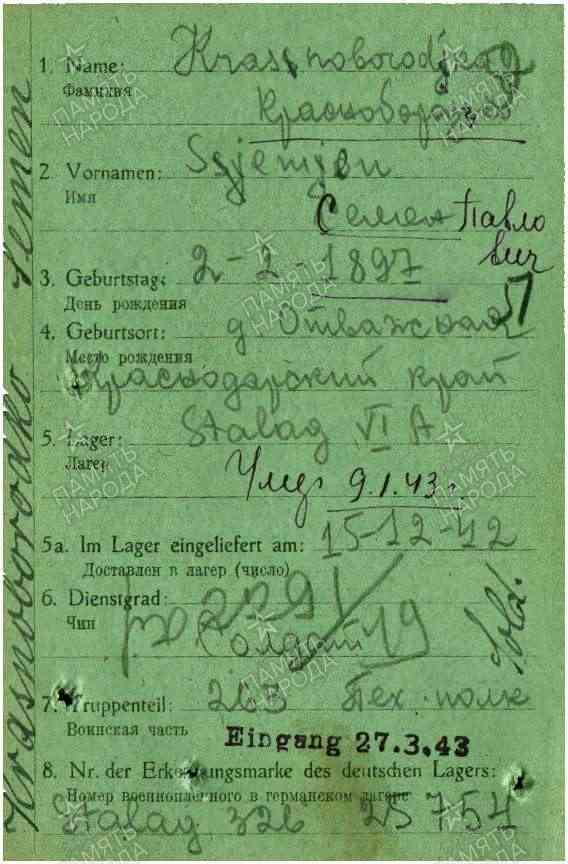 1. Name: Krassnoborodjko
Фамилия
Краснобородко
2 Vornamen: Ssjemjon
Имя
Семен Павло
вич
3. Geburtstag: 2-2-1897
День рождения
57
4. Geburtsort: д Отважская
Место рождения
Краснодарский край
5. Lager: Stalag VI A
Лагер
Умер 9.1.43 г
5a. Im Lager eingeliefert am: 15-12-42
Доставлен в лагер (число)
6. Dienstgrad:
Чин
Солдат
Sold.
7. Truppenteil: 263 Пех. полк
Воинская часть
Eingang 27.3.43
8. Nr. der Erkennungsmarke des deutschen Lagers:
Номер военнопленного в германском лагере
Stalag 326 25754
Krasnoborodko Semen
ПАМЯТЬ
НАРОДА